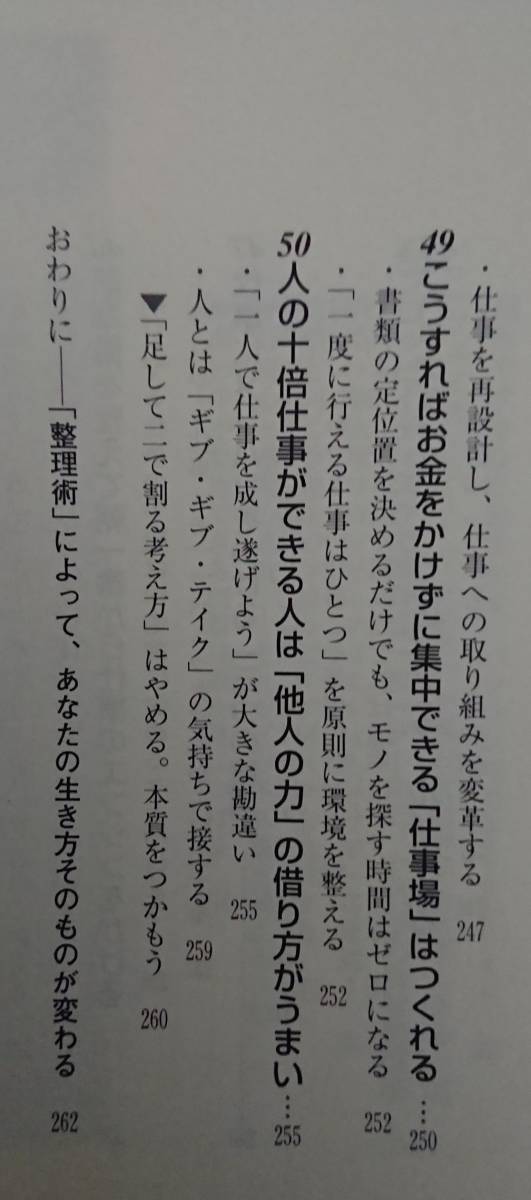 ・仕事を再設計し、仕事への取り組みを変革する 247
49 こうすればお金をかけずに集中できる「仕事場」はつくれる…250
・書類の定位置を決めるだけでも、モノを探す時間はゼロになる 252
・「一度に行える仕事はひとつ」を原則に環境を整える 252
50 人の十倍仕事ができる人は「他人の力」の借り方がうまい…255
・「一人で仕事を成し遂げよう」が大きな勘違い 255
・人とは「ギブ・ギブ・テイク」の気持ちで接する 259
▼「足して二で割る考え方」はやめる。本質をつかもう 260
おわりに──「整理術」によって、あなたの生き方そのものが変わる 262